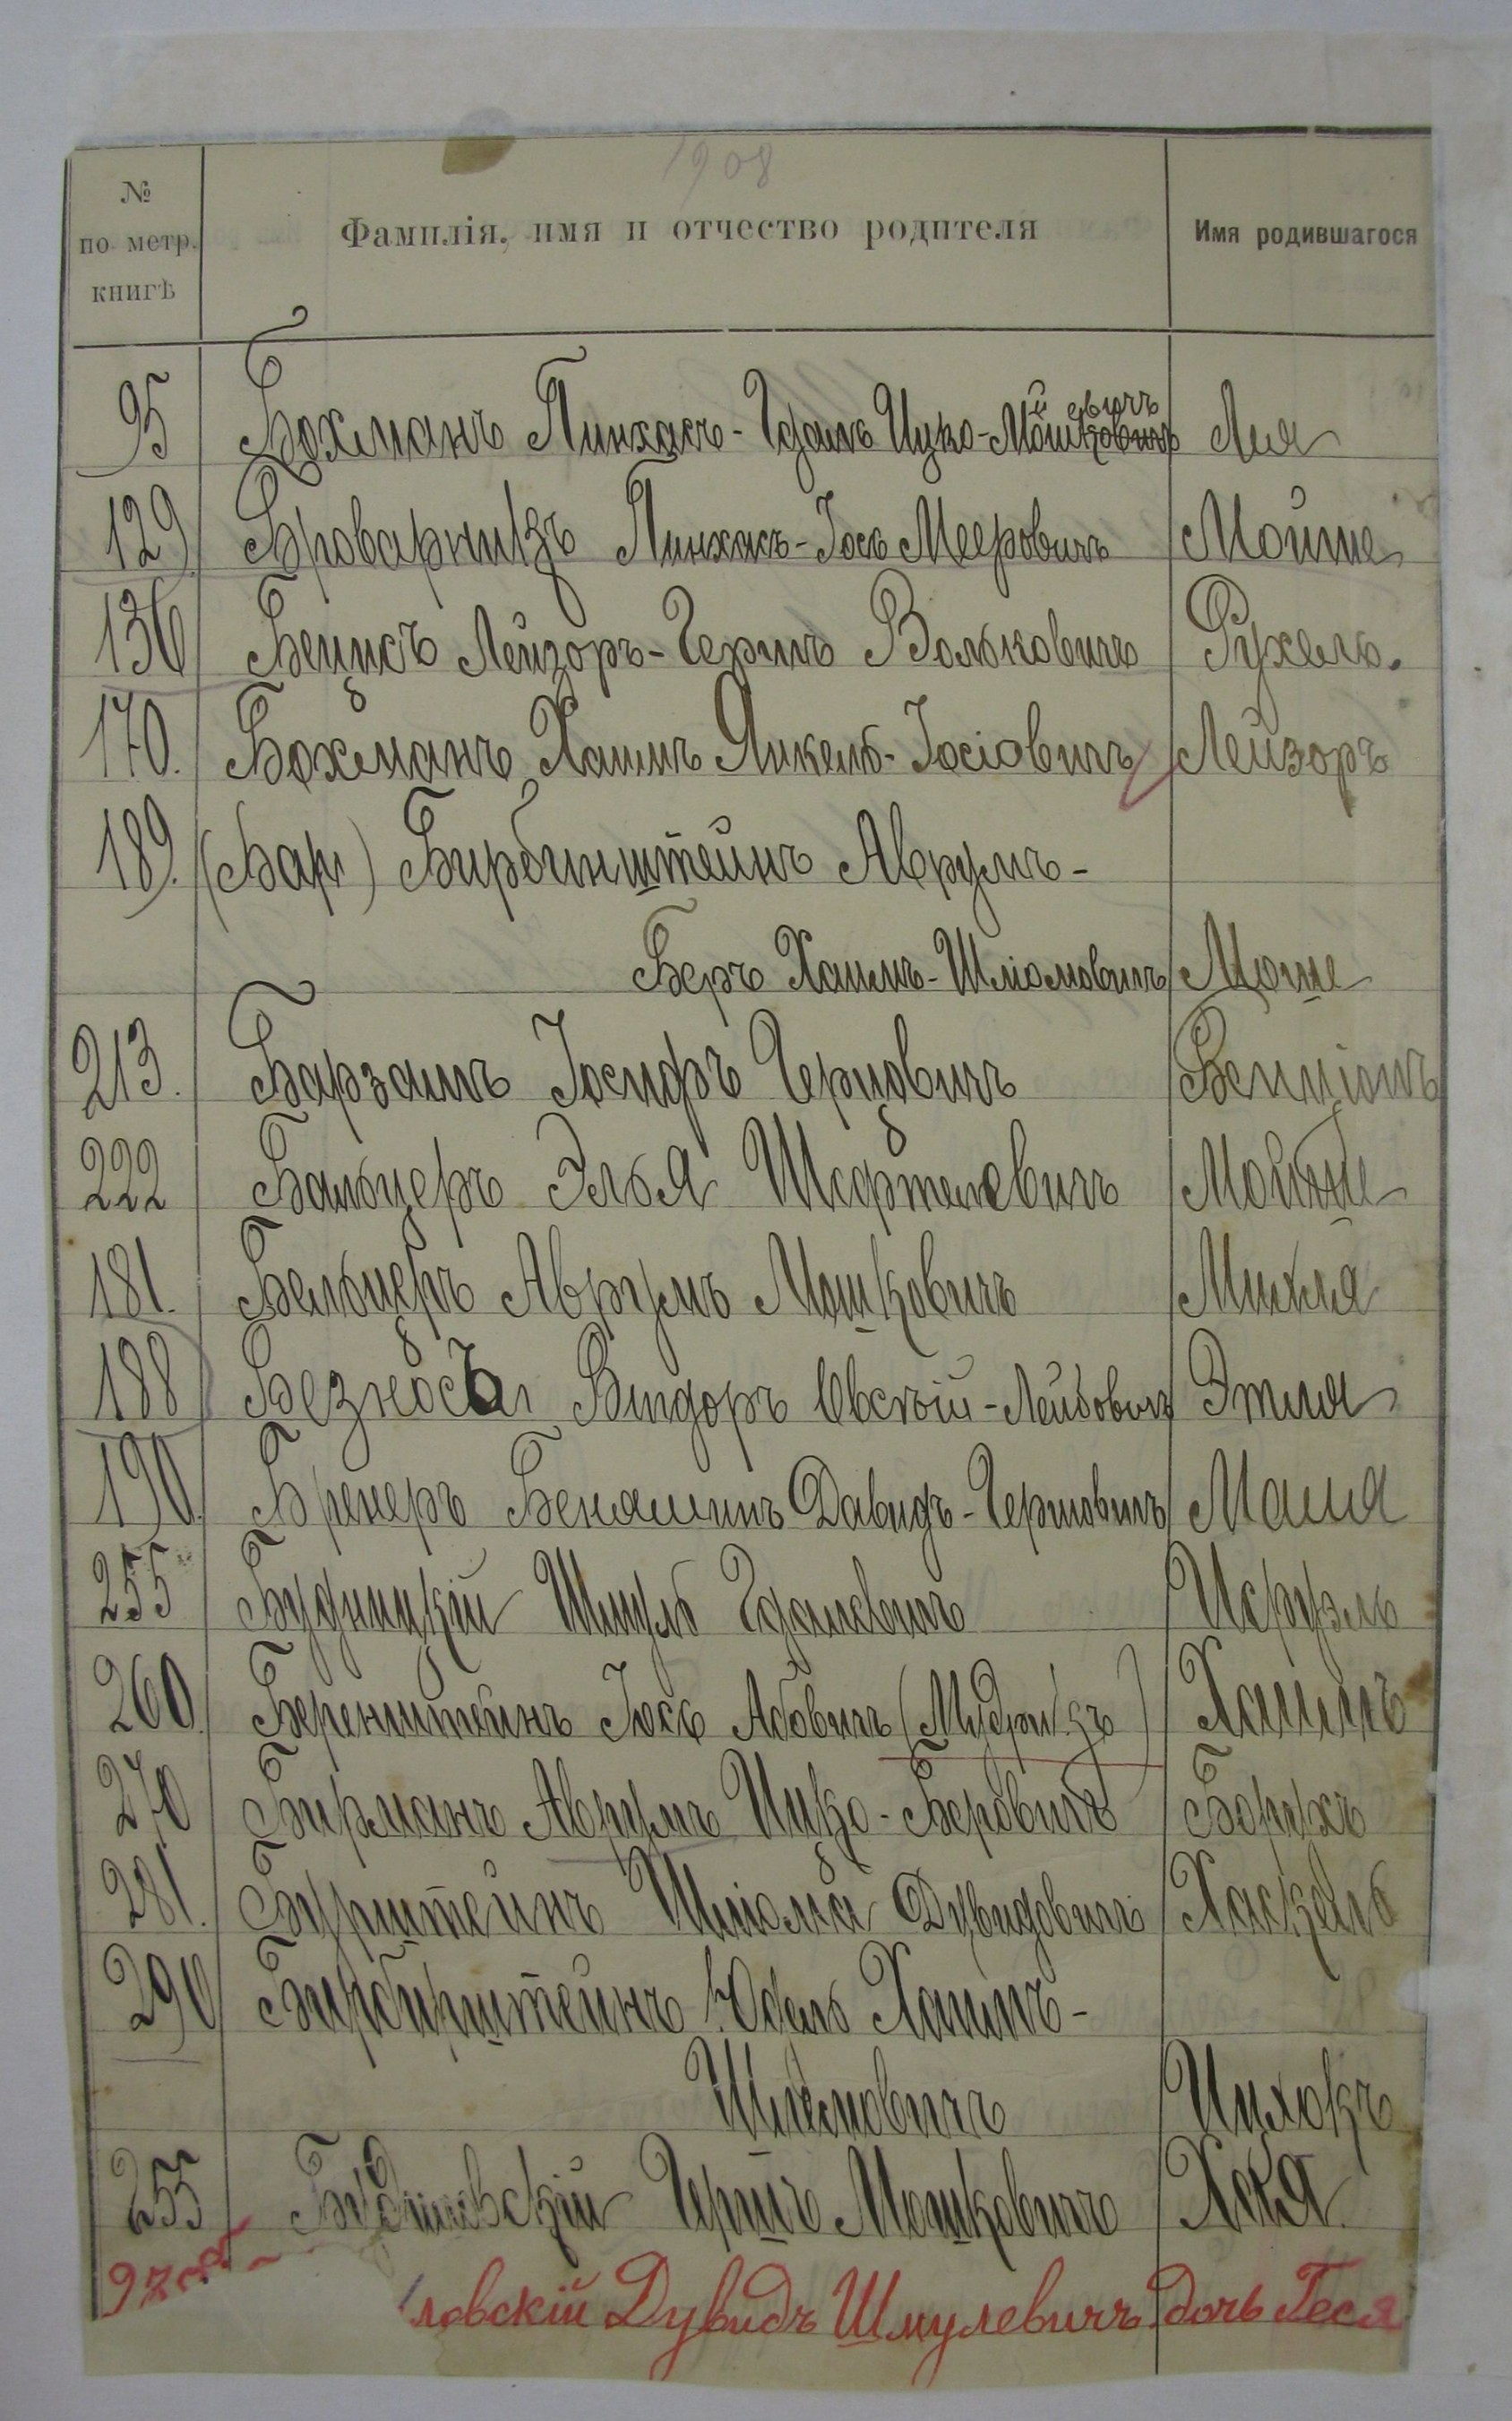 1908
№ по метр. книгѣ Фамилія, имя и отчество родителя Имя родившагося
95 Бохманъ Пинхасъ-Гдаль Ицко-Мошковичъ Лея
129 Броварникъ Пинхасъ-Іось Мееровичъ Мойше
136 Бецисъ Лейзоръ-Гершъ Вольковичъ Рухель.
170. Бохманъ Хаимъ Янкель-Іосіовичъ Лейзоръ
189. (Бар) Бирбинштейнъ Аврумъ-
Беръ Хаимъ-Шліомовичъ Моше
213. Барзамъ Іосифъ Герцовичъ Бенціонъ
222 Бальцеръ Элья Шефтелевичъ Мойше
181. Бельцеръ Аврумъ Мошковичъ Михля
188 Безносъ Вигдоръ Овсѣій-Лейбовичъ Этля
190. Бренеръ Беняминъ Давидъ-Гершовичъ Маля
255 Будницкій Шмуль Гдалевичъ Исруэль
260. Беренштейнъ Іось Абовичъ (Мудрикъ) Хаимъ
270 Бирманъ Аврумъ Ицко-Беровичъ Борухъ
281. Бурштейнъ Шліома Дувидовичъ Хаскель
290 Бирбирштейнъ Юдель Хаимъ-
Шліомовичъ Ицхокъ
255 Гершъ Мошковичъ Хая
ловскій Дувидъ Шмулевичъ дочь Геся